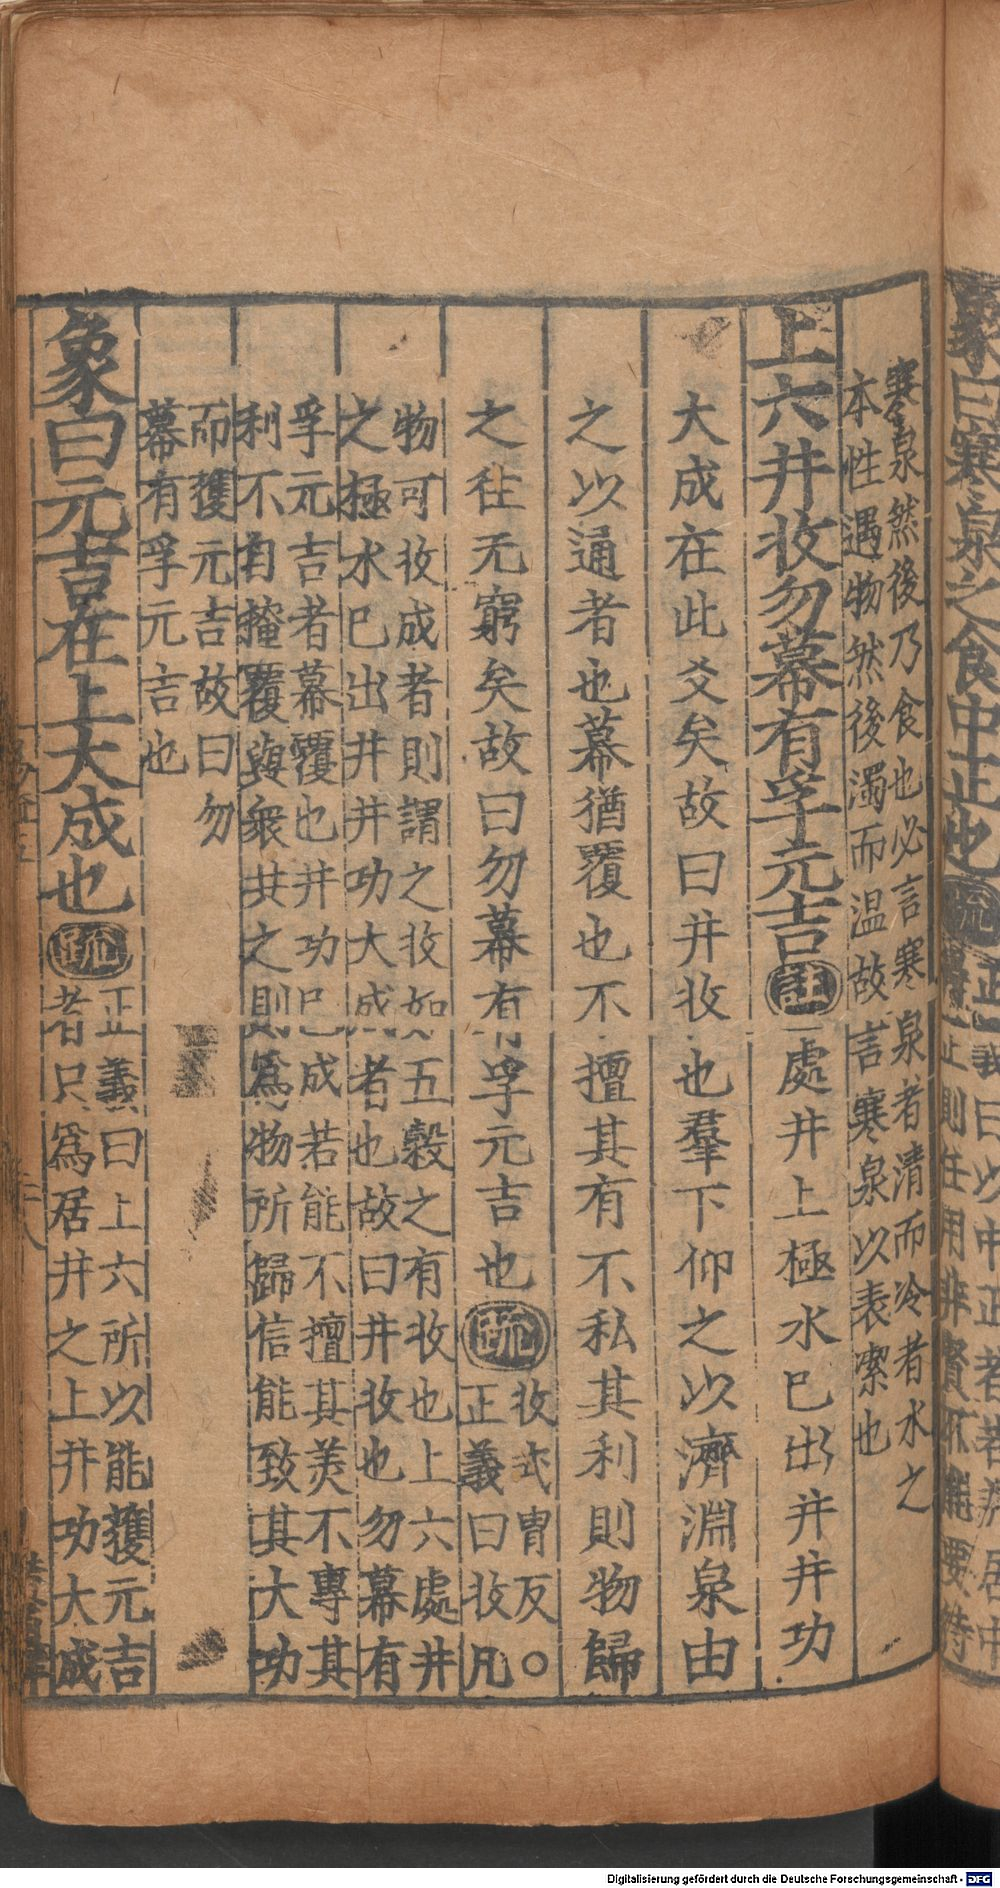 象曰寒泉之食中正也疏
正義曰以中正者若非居中
得正則任用非賢不能要待
寒泉然後乃食也必言寒泉者清而冷者水之
本性遇物然後濁而温故言寒泉以表潔也
上六井收勿幕有孚元吉註處井上極水巳出井井功
大成在此爻矣故曰井收也羣下仰之以濟淵泉由
之以通者也幕猶覆也不擅其有不私其利則物歸
之往无窮矣故曰勿幕有孚元吉也疏
收式冑反○
正義曰收凡
物可收成者則謂之收如五穀之有收也上六處井
之極水巳出井井功大成者也故曰井收也勿幕有
孚元吉者幕覆也井功巳成若能不擅其美不專其
利不自掩覆與衆共之則爲物所歸信能致其大功
而獲元吉故曰勿
幕有孚元吉也
象曰元吉在上大成也疏
正義曰上六所以能獲元吉
者只爲居井之上井功大成
Digitalisierung gefördert durch die Deutsche Forschungsgemeinschaft - DFG